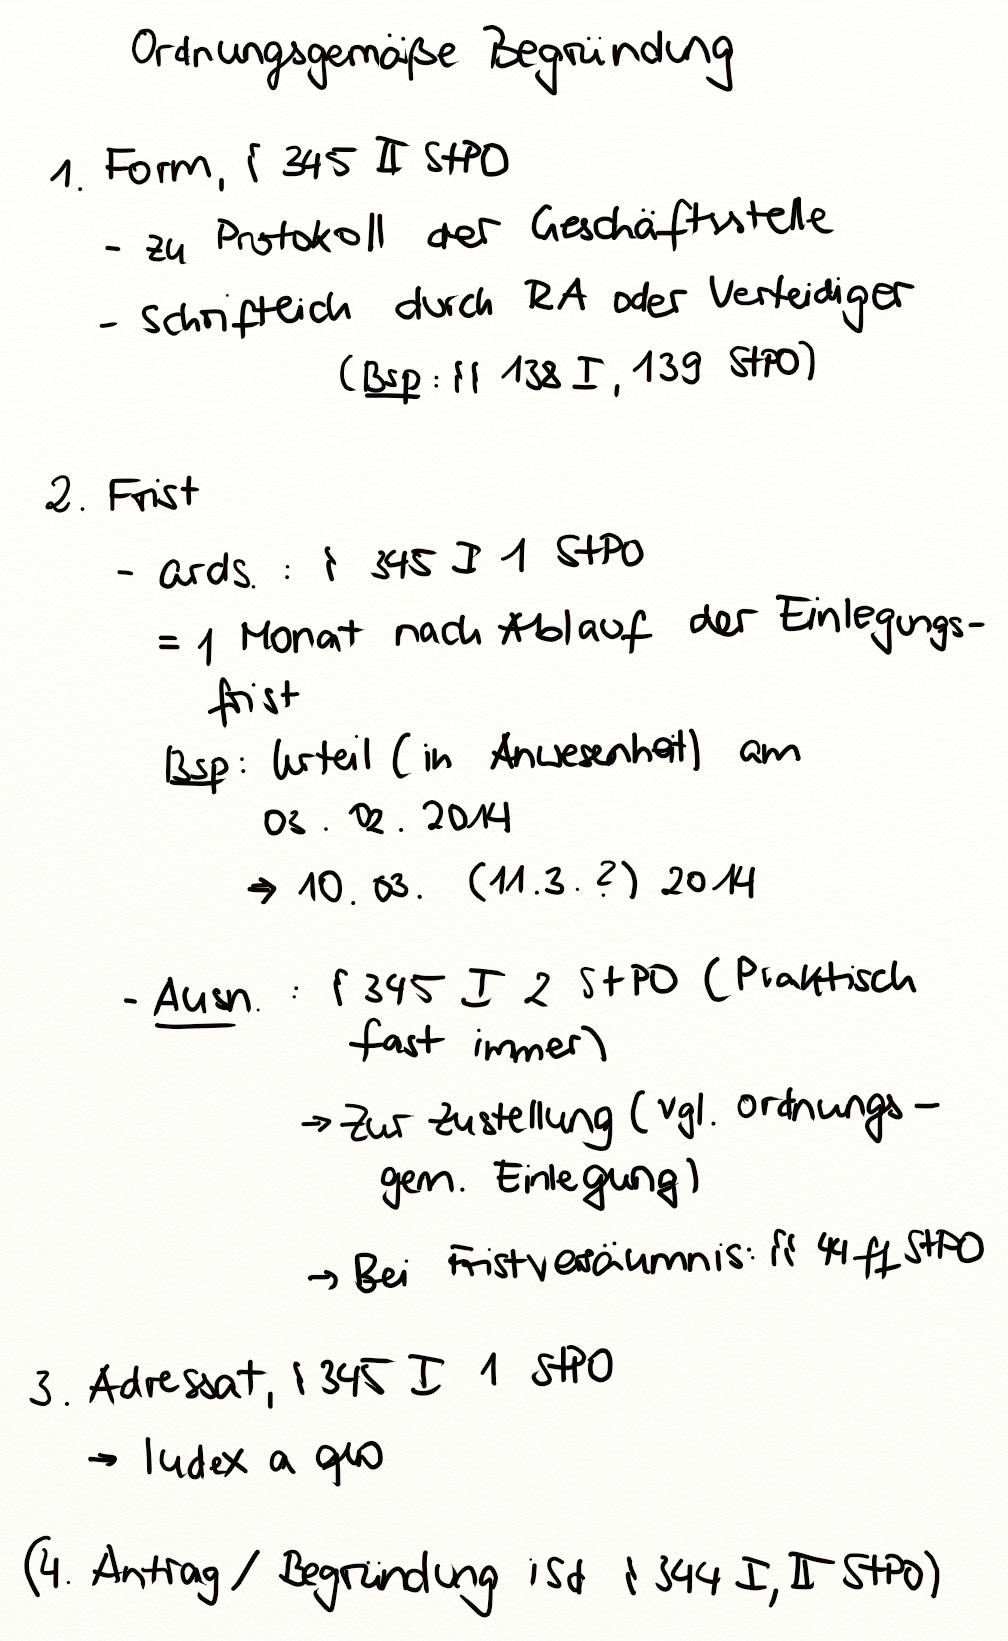 Ordnungsgemäße Begründung
1. Form, § 345 II StPO
- zu Protokoll der Geschäftsstelle
- Schriftlich durch RA oder Verteidiger
(Bsp: §§ 138 I, 139 StPO)
2. Frist
- grds. : § 345 I 1 StPO
= 1 Monat nach Ablauf der Einlegungs-
frist
Bsp: Urteil (in Anwesenheit) am
03. 02. 2014
→ 10. 03. (11.3.?) 2014
- Ausn. : § 345 I 2 StPO (Praktisch
fast immer)
→ Zur Zustellung (vgl. ordnungs-
gem. Einlegung)
→ Bei Fristversäumnis: §§ 44 ff StPO
3. Adressat, § 345 I 1 StPO
→ Iudex a quo
(4. Antrag / Begründung iSd § 344 I, II StPO)